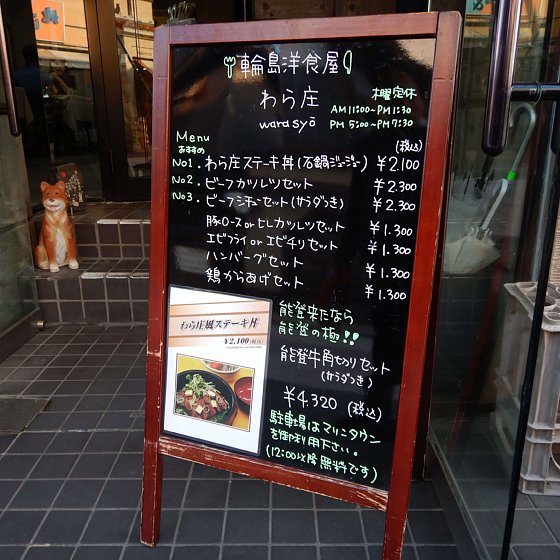 輪島洋食屋
わら庄
warasyō
木曜定休
AM 11:00~PM 1:30
PM 5:00~PM 7:30
Menu
おすすめ
(税込)
No1. わら庄ステーキ丼(石鍋ジュージュー) ¥2.100
No2. ビーフカツレツセット ¥2.300
No3. ビーフシチューセット(サラダつき) ¥2.300
豚ロースorヒレカツレツセット ¥1.300
エビフライorエビチリセット ¥1.300
ハンバーグセット ¥1.300
鶏からあげセット ¥1.300
わら庄風ステーキ丼
¥2,100(税込)
能登来たなら
能登の極!!
能登牛角切りセット
(サラダつき)
¥4.320 (税込)
駐車場はマリンタウン
を御利用下さい。
(12:00以降無料です)